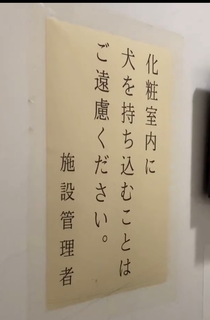 化粧室内に
犬を持ち込むことは
ご遠慮ください。
施設管理者